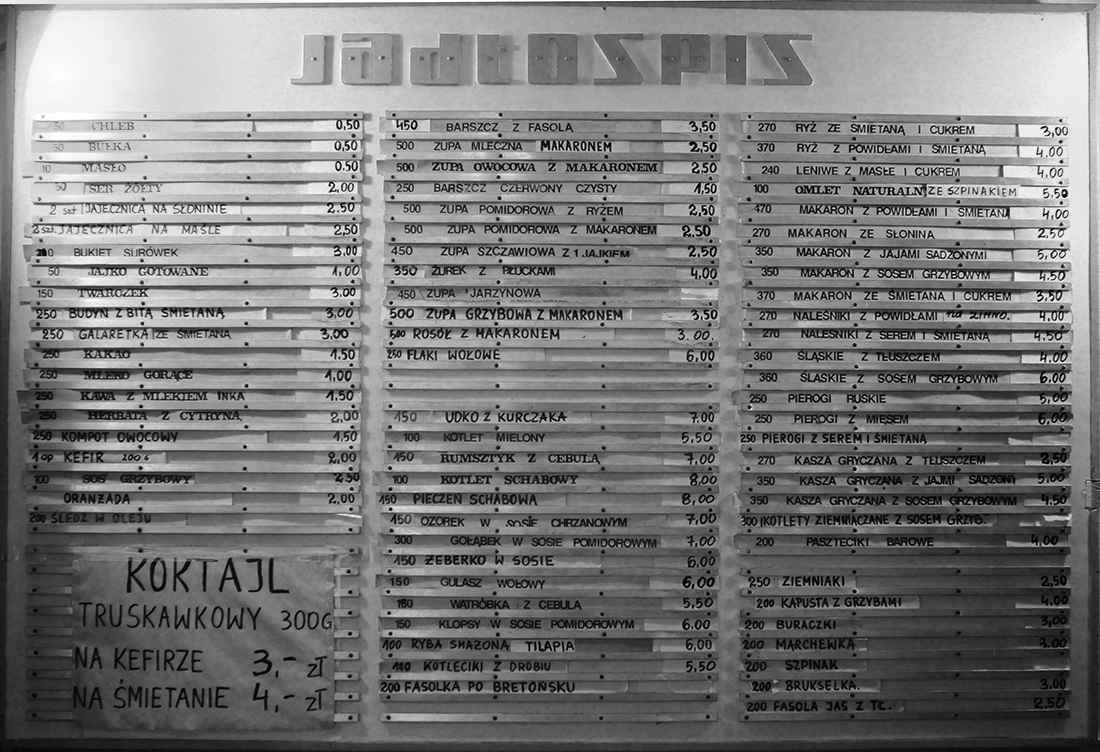 Jadłospis
50 CHLEB 0,50
50 BUŁKA 0,50
10 MASŁO 0,50
50 SER ŻÓŁTY 2,00
2 szt JAJECZNICA NA SŁONINIE 2,50
2 szt. JAJECZNICA NA MAŚLE 2,50
BUKIET SURÓWEK 3,00
50 JAJKO GOTOWANE 1,00
150 TWAROŻEK 3.00
250 BUDYŃ Z BITĄ ŚMIETANĄ 3,00
250 GALARETKA ZE ŚMIETANĄ 3,00
250 KAKAO 1.50
250 MLEKO GORĄCE 1,00
250 KAWA Z MLEKIEM INKA 1,50
250 HERBATA Z CYTRYNĄ 2,00
250 KOMPOT OWOCOWY 1,50
1 op KEFIR 200 G 2,00
100 SOS GRZYBOWY 2.50
ORANŻADA 2,00
200 ŚLEDŹ W OLEJU
KOKTAJL
TRUSKAWKOWY 300G
NA KEFIRZE 3,- zł
NA ŚMIETANIE 4,- zł
450 BARSZCZ Z FASOLĄ 3,50
500 ZUPA MLECZNA MAKARONEM 2,50
500 ZUPA OWOCOWA Z MAKARONEM 2,50
250 BARSZCZ CZERWONY CZYSTY 1,50
500 ZUPA POMIDOROWA Z RYŻEM 2,50
500 ZUPA POMIDOROWA Z MAKARONEM 2.50
450 ZUPA SZCZAWIOWA Z 1 JAJKIEM 2,50
350 ŻUREK Z PŁUCKAMI 4,00
450 ZUPA JARZYNOWA
500 ZUPA GRZYBOWA Z MAKARONEM 3,50
500 ROSÓŁ Z MAKARONEM 3.00.
250 FLAKI WOŁOWE 6,00
150 UDKO Z KURCZAKA 7.00
100 KOTLET MIELONY 5,50
150 RUMSZTYK Z CEBULĄ 7,00
100 KOTLET SCHABOWY 8,00
150 PIECZEŃ SCHABOWA 8,00
150 OZOREK W SOSIE CHRZANOWYM 7,00
300 GOŁĄBEK W SOSIE POMIDOROWYM 7,00
150 ŻEBERKO W SOSIE 6,00
150 GULASZ WOŁOWY 6,00
150 WĄTRÓBKA Z CEBULĄ 5,50
150 KLOPSY W SOSIE POMIDOROWYM 6.00
100 RYBA SMAŻONA TILAPIA 6,00
100 KOTLECIKI Z DROBIU 5,50
200 FASOLKA PO BRETOŃSKU
270 RYŻ ZE ŚMIETANĄ I CUKREM 3,00
370 RYŻ Z POWIDŁAMI I ŚMIETANĄ 4.00
240 LENIWE Z MASŁE I CUKREM 4,00
100 OMLET NATURALN ZE SZPINAKIEM 5,50
470 MAKARON Z POWIDŁAMI I ŚMIETANĄ 4,00
270 MAKARON ZE SŁONINĄ 2,50
350 MAKARON Z JAJAMI SADZONYMI 5,00
350 MAKARON Z SOSEM GRZYBOWYM 4.50
370 MAKARON ZE ŚMIETANĄ I CUKREM 3,50
270 NALEŚNIKI Z POWIDŁAMI na zimno. 4,00
270 NALEŚNIKI Z SEREM I ŚMIETANĄ 4,50
360 ŚLĄSKIE Z TŁUSZCZEM 4,00
360 ŚLĄSKIE Z SOSEM GRZYBOWYM 6,00
250 PIEROGI RUSKIE 5,00
250 PIEROGI Z MIĘSEM 6,00
250 PIEROGI Z SEREM I ŚMIETANĄ
270 KASZA GRYCZANA Z TŁUSZCZEM 2,50
350 KASZA GRYCZANA Z JAJMI SADZONY 5.00
350 KASZA GRYCZANA Z SOSEM GRZYBOWYM 4,50
300 KOTLETY ZIEMNIACZANE Z SOSEM GRZYB.
200 PASZTECIKI BAROWE 4,00
250 ZIEMNIAKI 2,50
200 KAPUSTA Z GRZYBAMI 4.00
200 BURACZKI 3,00
200 MARCHEWKA 3.00
200 SZPINAK
200 BRUKSELKA. 3,00
200 FASOLA JAŚ Z TŁ. 2,50